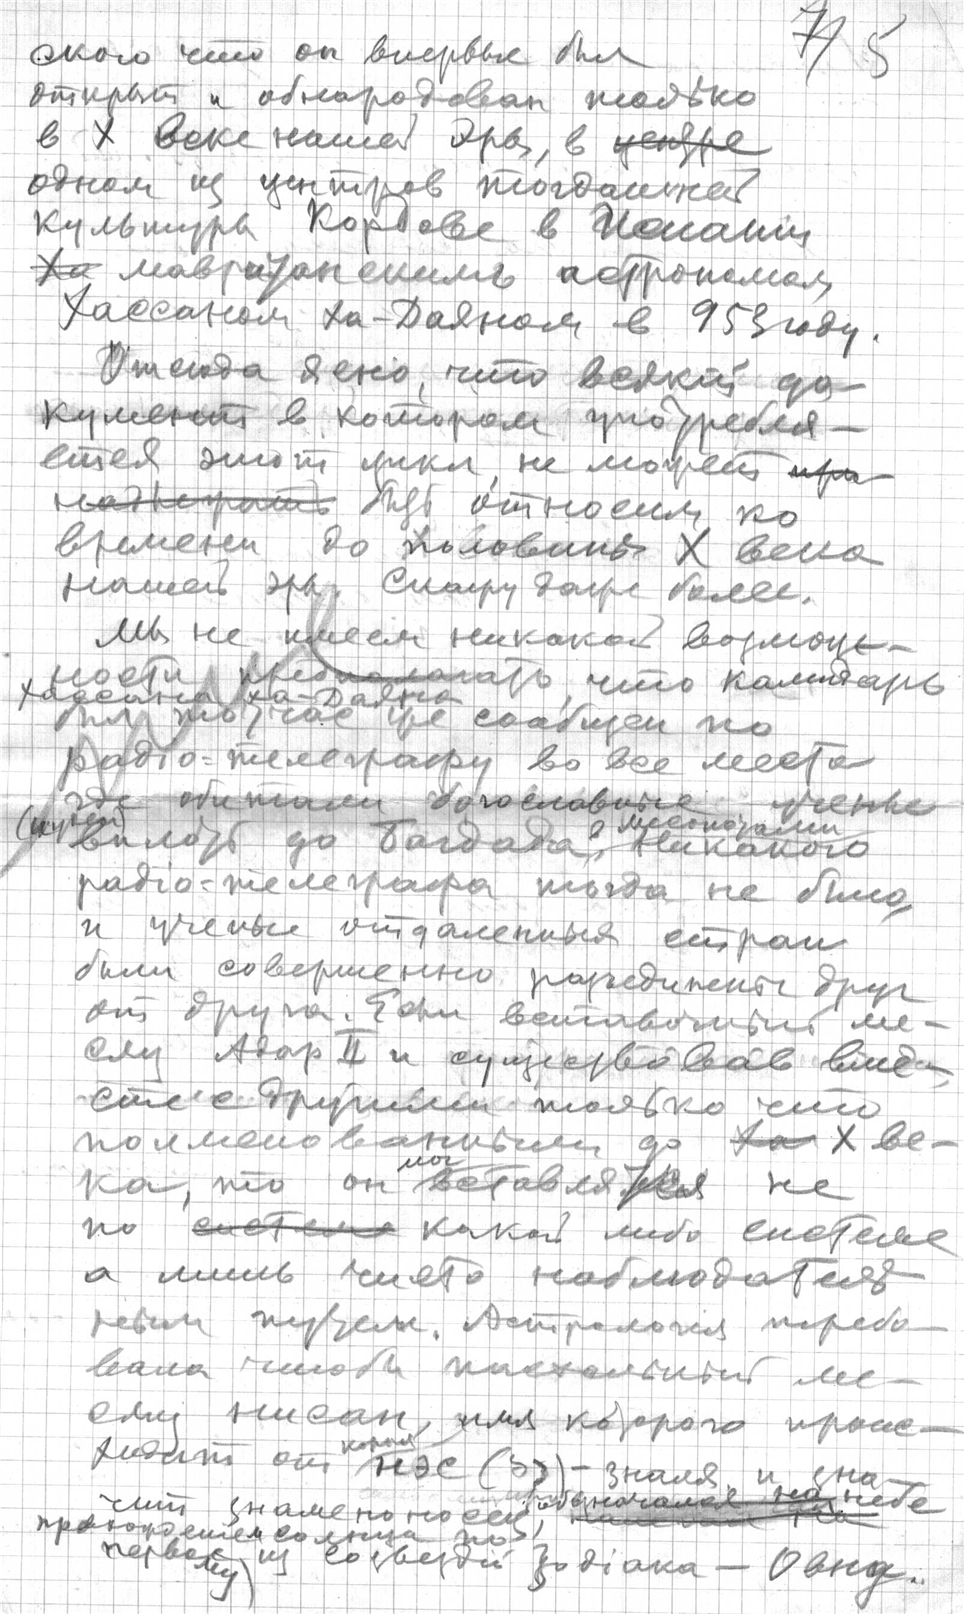 7) 5
ского что он впервые был
открыт и обнародован только
в X веке нашей эры, в центре
одном из центров тогдашней
культуры Кордове в Испании
Ха мавританским астрономом
Хассаном Ха-Даяном в 953 году.
Отсюда ясно, что всякий до-
кумент в котором употребля-
ется этот цикл, не может при-
надлежать быть относим ко
времени до половины X века
нашей эры. Скажу даже более.
Мы не имеем никакой возмож-
ности предполагать, что календарь
Хассана Ха-Даяна
был тотчас же сообщен по
радіо-телеграфу во все места
где обитали богославные ученые
вплоть до Багдада. Никакого
радіо-телеграфа тогда не было,
и ученые отдаленных стран
были совершенно разъединены друг
от друга. Если вставочный ме-
сяц Адар II и существовав вме-
сте с другими только что
поименованными до Ха X ве-
ка, то он мог вставляться не
по системе какой либо системе
а лишь чисто наблюдатель-
ным путем. Астрология требо-
вала чтобы пасхальный ме-
сяц нисан, имя которого проис-
ходит от корня
НЭС (נס) - знамя, и зна-
чит знаменосец, обозначался на небе
прохождением солнца по
первому из созвездий Зодіака — Овну.